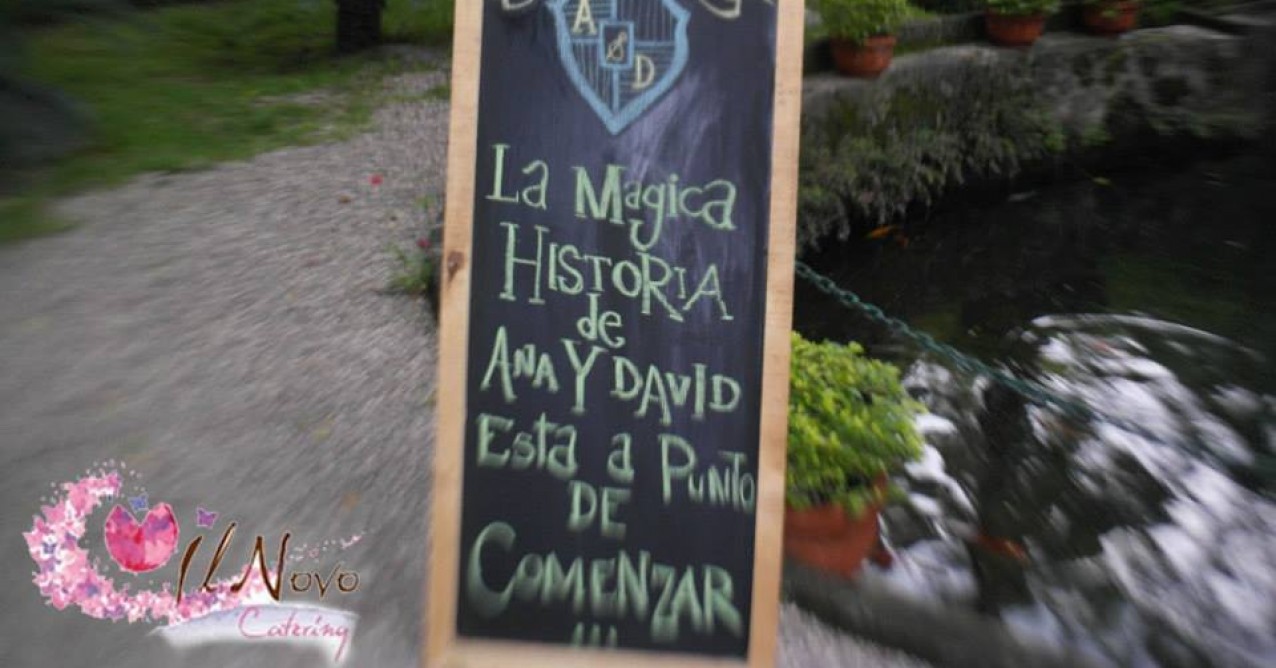 A
&
D
La Magica
HISTORIA
de
ANA Y DAVID
Esta a Punto
DE
COMENZAR
!!!
Il Novo
Catering